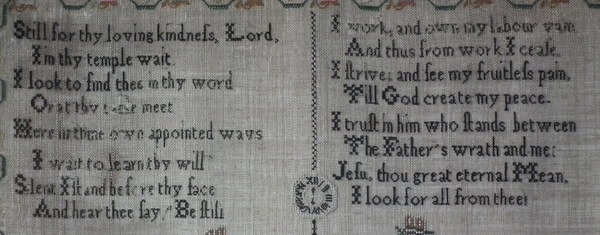 Still for thy loving kindneſs, Lord,
I in thy temple wait
I look to find thee in thy word
Or at thy table meet
Here in thine own appointed ways
I wait to learn thy will
Silent I ſt and before thy face
And hear thee ſay / Be ſtill
I work, and own my labour vain
And thus from work I ceaſe.
I ſtrive, and ſee my fruitleſs pain,
Till God create my peace.
I truſt in him who ſtands between
The Father's wrath and me:
Jeſu, thou great eternal Mean,
I look for all from thee: